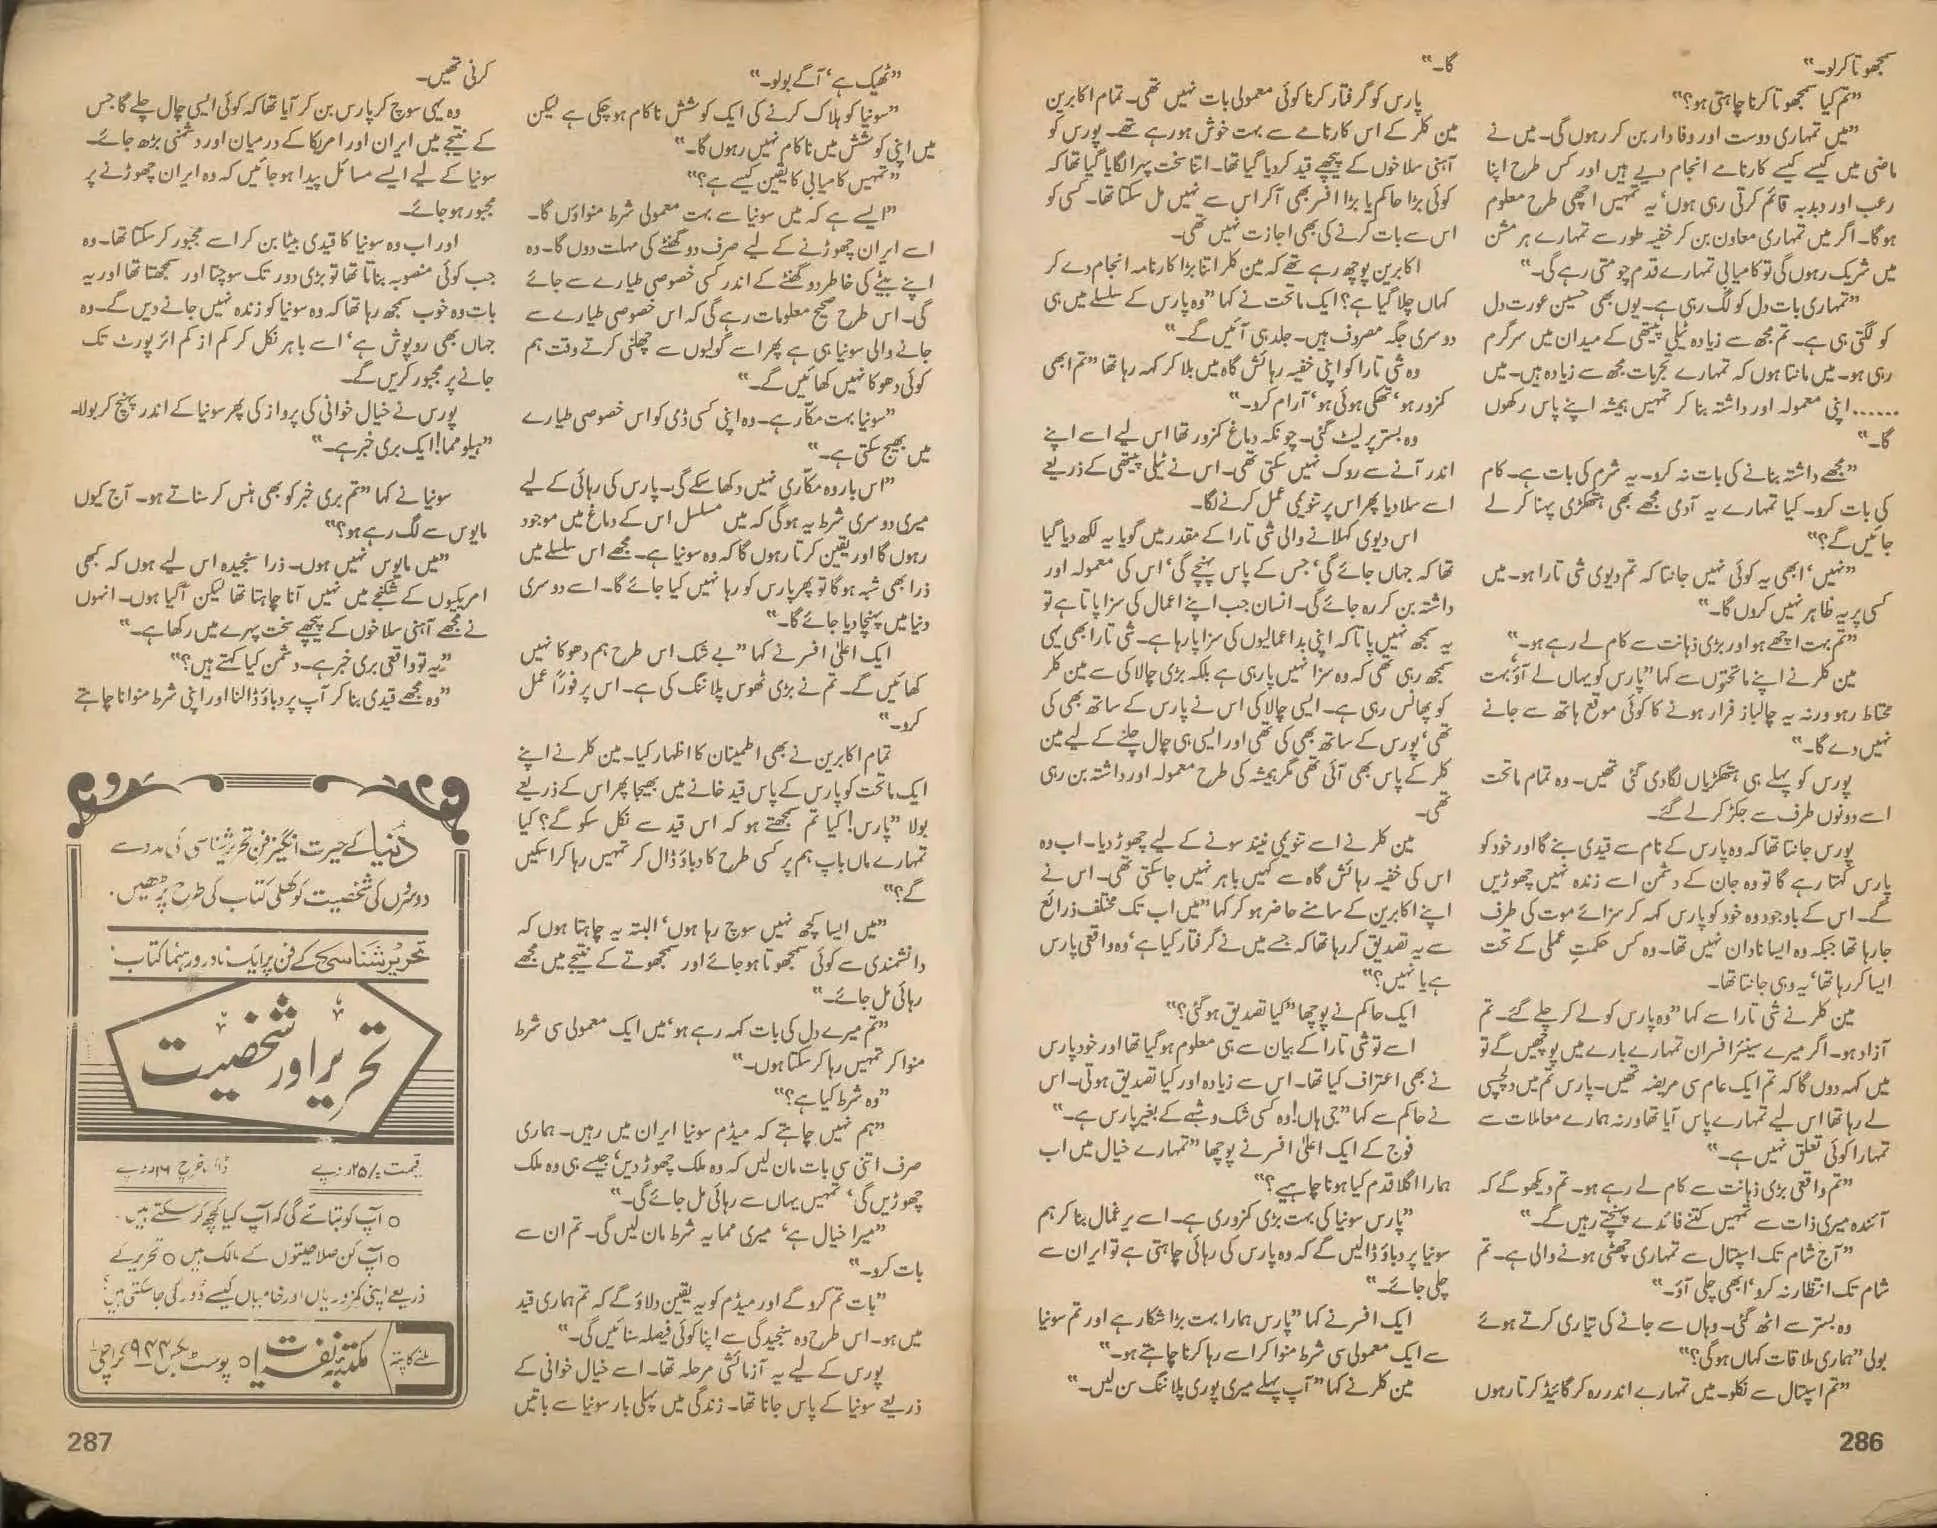 سمجھوتا کرلو۔"
"تم کیا سمجھوتا کرنا چاہتی ہو؟"
"میں تمہاری دوست اور وفادار بن کر رہوں گی۔ میں نے
ماضی میں کیسے کیسے کارنامے انجام دیے ہیں اور کس طرح اپنا
رعب اور دبدبہ قائم کرتی رہی ہوں، یہ تمہیں اچھی طرح معلوم
ہوگا۔ اگر میں تمہاری معاون بن کر خفیہ طور سے تمہارے ہر مشن
میں شریک رہوں گی تو کامیابی تمہارے قدم چومتی رہے گی۔"
"تمہاری بات دل کو لگ رہی ہے۔ یوں بھی حسین عورت دل
کو لگتی ہی ہے۔ تم مجھ سے زیادہ ٹیلی پیتھی کے میدان میں سرگرم
رہی ہو۔ میں مانتا ہوں کہ تمہارے تجربات مجھ سے زیادہ ہیں۔ میں
...... اپنی معمولہ اور داشتہ بنا کر تمہیں ہمیشہ اپنے پاس رکھوں
گا۔"
"مجھے داشتہ بنانے کی بات نہ کرو۔ یہ شرم کی بات ہے۔ کام
کی بات کرو۔ کیا تمہارے یہ آدمی مجھے بھی ہتھکڑی پہنا کر لے
جائیں گے؟"
"نہیں، ابھی یہ کوئی نہیں جانتا کہ تم دیوی شی تارا ہو۔ میں
کسی پر یہ ظاہر نہیں کروں گا۔"
"تم بہت اچھے ہو اور بڑی ذہانت سے کام لے رہے ہو۔"
مین کلر نے اپنے ماتحتوں سے کہا "پارس کو یہاں لے آؤ، بہت
محتاط رہو ورنہ یہ چالباز فرار ہونے کا کوئی موقع ہاتھ سے جانے
نہیں دے گا۔"
پورس کو پہلے ہی ہتھکڑیاں لگا دی گئی تھیں۔ وہ تمام ماتحت
اسے دونوں طرف سے جکڑ کر لے گئے۔
پورس جانتا تھا کہ وہ پارس کے نام سے قیدی بنے گا اور خود کو
پارس کہتا رہے گا تو وہ جان کے دشمن اسے زندہ نہیں چھوڑیں
گے۔ اس کے باوجود وہ خود کو پارس کہہ کر سزائے موت کی طرف
جا رہا تھا جبکہ وہ ایسا نادان نہیں تھا۔ وہ کس حکمتِ عملی کے تحت
ایسا کر رہا تھا، یہ وہی جانتا تھا۔
مین کلر نے شی تارا سے کہا "وہ پارس کو لے کر چلے گئے۔ تم
آزاد ہو۔ اگر میرے سینئر افسران تمہارے بارے میں پوچھیں گے تو
میں کہہ دوں گا کہ تم ایک عام سی مریضہ تھیں۔ پارس تم میں دلچسپی
لے رہا تھا اس لیے تمہارے پاس آیا تھا ورنہ ہمارے معاملات سے
تمہارا کوئی تعلق نہیں ہے۔"
"تم واقعی بڑی ذہانت سے کام لے رہے ہو۔ تم دیکھو گے کہ
آئندہ میری ذات سے تمہیں کتنے فائدے پہنچتے رہیں گے۔"
"آج شام تک اسپتال سے تمہاری چھٹی ہونے والی ہے۔ تم
شام تک انتظار نہ کرو، ابھی چلی آؤ۔"
وہ بستر سے اٹھ گئی۔ وہاں سے جانے کی تیاری کرتے ہوئے
بولی "ہماری ملاقات کہاں ہوگی؟"
"تم اسپتال سے نکلو۔ میں تمہارے اندر رہ کر گائیڈ کرتا رہوں
گا۔"
پارس کو گرفتار کرنا کوئی معمولی بات نہیں تھی۔ تمام اکابرین
مین کلر کے اس کارنامے سے بہت خوش ہو رہے تھے۔ پورس کو
آہنی سلاخوں کے پیچھے قید کر دیا گیا تھا۔ اتنا سخت پہرا لگایا گیا تھا کہ
کوئی بڑا حاکم یا بڑا افسر بھی آکر اس سے نہیں مل سکتا تھا۔ کسی کو
اس سے بات کرنے کی بھی اجازت نہیں تھی۔
اکابرین پوچھ رہے تھے کہ مین کلر اتنا بڑا کارنامہ انجام دے کر
کہاں چلا گیا ہے؟ ایک ماتحت نے کہا "وہ پارس کے سلسلے میں ہی
دوسری جگہ مصروف ہیں۔ جلد ہی آئیں گے۔"
وہ شی تارا کو اپنی خفیہ رہائش گاہ میں بلا کر کہہ رہا تھا "تم ابھی
کمزور ہو، تھکی ہوئی ہو، آرام کرو۔"
وہ بستر پر لیٹ گئی۔ چونکہ دماغ کمزور تھا اس لیے اسے اپنے
اندر آنے سے روک نہیں سکتی تھی۔ اس نے ٹیلی پیتھی کے ذریعے
اسے سلا دیا پھر اس پر تنویمی عمل کرنے لگا۔
اس دیوی کہلانے والی شی تارا کے مقدر میں گویا یہ لکھ دیا گیا
تھا کہ جہاں جائے گی، جس کے پاس پہنچے گی، اس کی معمولہ اور
داشتہ بن کر رہ جائے گی۔ انسان جب اپنے اعمال کی سزا پاتا ہے تو
یہ سمجھ نہیں پاتا کہ اپنی بداعمالیوں کی سزا پا رہا ہے۔ شی تارا بھی یہی
سمجھ رہی تھی کہ وہ سزا نہیں پا رہی ہے بلکہ بڑی چالاکی سے مین کلر
کو پھانس رہی ہے۔ ایسی چالاکی اس نے پارس کے ساتھ بھی کی
تھی، پورس کے ساتھ بھی کی تھی اور ایسی ہی چال چلنے کے لیے مین
کلر کے پاس بھی آئی تھی مگر ہمیشہ کی طرح معمولہ اور داشتہ بن رہی
تھی۔
مین کلر نے اسے تنویمی نیند سونے کے لیے چھوڑ دیا۔ اب وہ
اس کی خفیہ رہائش گاہ سے کہیں باہر نہیں جا سکتی تھی۔ اس نے
اپنے اکابرین کے سامنے حاضر ہو کر کہا "میں اب تک مختلف ذرائع
سے یہ تصدیق کر رہا تھا کہ جسے میں نے گرفتار کیا ہے، وہ واقعی پارس
ہے یا نہیں؟"
ایک حاکم نے پوچھا "کیا تصدیق ہو گئی؟"
اسے تو شی تارا کے بیان سے ہی معلوم ہو گیا تھا اور خود پارس
نے بھی اعتراف کیا تھا۔ اس سے زیادہ اور کیا تصدیق ہوتی۔ اس
نے حاکم سے کہا "جی ہاں! وہ کسی شک و شبہے کے بغیر پارس ہے۔"
فوج کے ایک اعلیٰ افسر نے پوچھا "تمہارے خیال میں اب
ہمارا اگلا قدم کیا ہونا چاہیے؟"
"پارس سونیا کی بہت بڑی کمزوری ہے۔ اسے یرغمال بنا کر ہم
سونیا پر دباؤ ڈالیں گے کہ وہ پارس کی رہائی چاہتی ہے تو ایران سے
چلی جائے۔"
ایک افسر نے کہا "پارس ہمارا بہت بڑا شکار ہے اور تم سونیا
سے ایک معمولی سی شرط منوا کر اسے رہا کرنا چاہتے ہو۔"
مین کلر نے کہا "آپ پہلے میری پوری پلاننگ سن لیں۔"
286
"ٹھیک ہے، آگے بولو۔"
"سونیا کو ہلاک کرنے کی ایک کوشش ناکام ہو چکی ہے لیکن
میں اپنی کوشش میں ناکام نہیں رہوں گا۔"
"تمہیں کامیابی کا یقین کیسے ہے؟"
"ایسے ہے کہ میں سونیا سے بہت معمولی شرط منواؤں گا۔
اسے ایران چھوڑنے کے لیے صرف دو گھنٹے کی مہلت دوں گا۔ وہ
اپنے بیٹے کی خاطر دو گھنٹے کے اندر کسی خصوصی طیارے سے جائے
گی۔ اس طرح صحیح معلومات رہے گی کہ اس خصوصی طیارے سے
جانے والی سونیا ہی ہے پھر اسے گولیوں سے چھلنی کرتے وقت ہم
کوئی دھوکا نہیں کھائیں گے۔"
"سونیا بہت مکار ہے۔ وہ اپنی کسی ڈمی کو اس خصوصی طیارے
میں بھیج سکتی ہے۔"
"اس بار وہ مکاری نہیں دکھا سکے گی۔ پارس کی رہائی کے لیے
میری دوسری شرط یہ ہوگی کہ میں مسلسل اس کے دماغ میں موجود
رہوں گا اور یقین کرتا رہوں گا کہ وہ سونیا ہے۔ مجھے اس سلسلے میں
ذرا بھی شبہ ہوگا تو پھر پارس کو رہا نہیں کیا جائے گا۔ اسے دوسری
دنیا میں پہنچا دیا جائے گا۔"
ایک اعلیٰ افسر نے کہا "بے شک اس طرح ہم دھوکا نہیں
کھائیں گے۔ تم نے بڑی ٹھوس پلاننگ کی ہے۔ اس پر فوراً عمل
کرو۔"
تمام اکابرین نے بھی اطمینان کا اظہار کیا۔ مین کلر نے اپنے
ایک ماتحت کو پارس کے پاس قید خانے میں بھیجا پھر اس کے ذریعے
بولا "پارس! کیا تم سمجھتے ہو کہ اس قید سے نکل سکو گے؟ کیا
تمہارے ماں باپ ہم پر کسی طرح کا دباؤ ڈال کر تمہیں رہا کرا سکیں
گے؟"
"میں ایسا کچھ نہیں سوچ رہا ہوں، البتہ یہ چاہتا ہوں کہ
دانشمندی سے کوئی سمجھوتا ہو جائے اور سمجھوتے کے نتیجے میں مجھے
رہائی مل جائے۔"
"تم میرے دل کی بات کہہ رہے ہو، میں ایک معمولی سی شرط
منوا کر تمہیں رہا کر سکتا ہوں۔"
"وہ شرط کیا ہے؟"
"ہم نہیں چاہتے کہ میڈم سونیا ایران میں رہیں۔ ہماری
صرف اتنی سی بات مان لیں کہ وہ ملک چھوڑ دیں، جیسے ہی وہ ملک
چھوڑیں گی، تمہیں یہاں سے رہائی مل جائے گی۔"
"میرا خیال ہے، میری مما یہ شرط مان لیں گی۔ تم ان سے
بات کرو۔"
"بات تم کرو گے اور میڈم کو یہ یقین دلاؤ گے کہ تم ہماری قید
میں ہو۔ اس طرح وہ سنجیدگی سے اپنا کوئی فیصلہ سنائیں گی۔"
پورس کے لیے یہ آزمائشی مرحلہ تھا۔ اسے خیال خوانی کے
ذریعے سونیا کے پاس جانا تھا۔ زندگی میں پہلی بار سونیا سے باتیں
کرنی تھیں۔
وہ یہی سوچ کر پارس بن کر آیا تھا کہ کوئی ایسی چال چلے گا جس
کے نتیجے میں ایران اور امریکا کے درمیان اور دشمنی بڑھ جائے۔
سونیا کے لیے ایسے مسائل پیدا ہو جائیں کہ وہ ایران چھوڑنے پر
مجبور ہو جائے۔
اور اب وہ سونیا کا قیدی بیٹا بن کر اسے مجبور کر سکتا تھا۔ وہ
جب کوئی منصوبہ بناتا تھا تو بڑی دور تک سوچتا اور سمجھتا تھا اور یہ
بات وہ خوب سمجھ رہا تھا کہ وہ سونیا کو زندہ نہیں جانے دیں گے۔ وہ
جہاں بھی روپوش ہے، اسے باہر نکل کر کم از کم ائرپورٹ تک
جانے پر مجبور کریں گے۔
پورس نے خیال خوانی کی پرواز کی پھر سونیا کے اندر پہنچ کر بولا۔
"ہیلو مما! ایک بری خبر ہے۔"
سونیا نے کہا "تم بری خبر کو بھی ہنس کر سناتے ہو۔ آج کیوں
مایوس سے لگ رہے ہو؟"
"میں مایوس نہیں ہوں۔ ذرا سنجیدہ اس لیے ہوں کہ کبھی
امریکیوں کے شکنجے میں نہیں آنا چاہتا تھا لیکن آگیا ہوں۔ انہوں
نے مجھے آہنی سلاخوں کے پیچھے سخت پہرے میں رکھا ہے۔"
"یہ تو واقعی بری خبر ہے۔ دشمن کیا کہتے ہیں؟"
"وہ مجھے قیدی بنا کر آپ پر دباؤ ڈالنا اور اپنی شرط منوانا چاہتے
دُنیا کے حیرت انگیز فن تحریر شناسی کی مدد سے
دوسروں کی شخصیت کو کھلی کتاب کی طرح پڑھیں.
تحریر شناسی کے فن پر ایک نادر و رہنما کتاب
تحریر اور شخصیت
قیمت -/۲۵ روپے ڈاک خرچ ۱۶ روپے
○ آپ کو بتائے گی کہ آپ کیا کچھ کر سکتے ہیں.
○ آپ کن صلاحیتوں کے مالک ہیں ○ تحریر کے
ذریعے اپنی کمزوریاں اور خامیاں کیسے دُور کی جا سکتی ہیں؟
ملنے کا پتہ مکتبہ نفسیات ○ پوسٹ بکس ۹۴۴ کراچی ۱
287